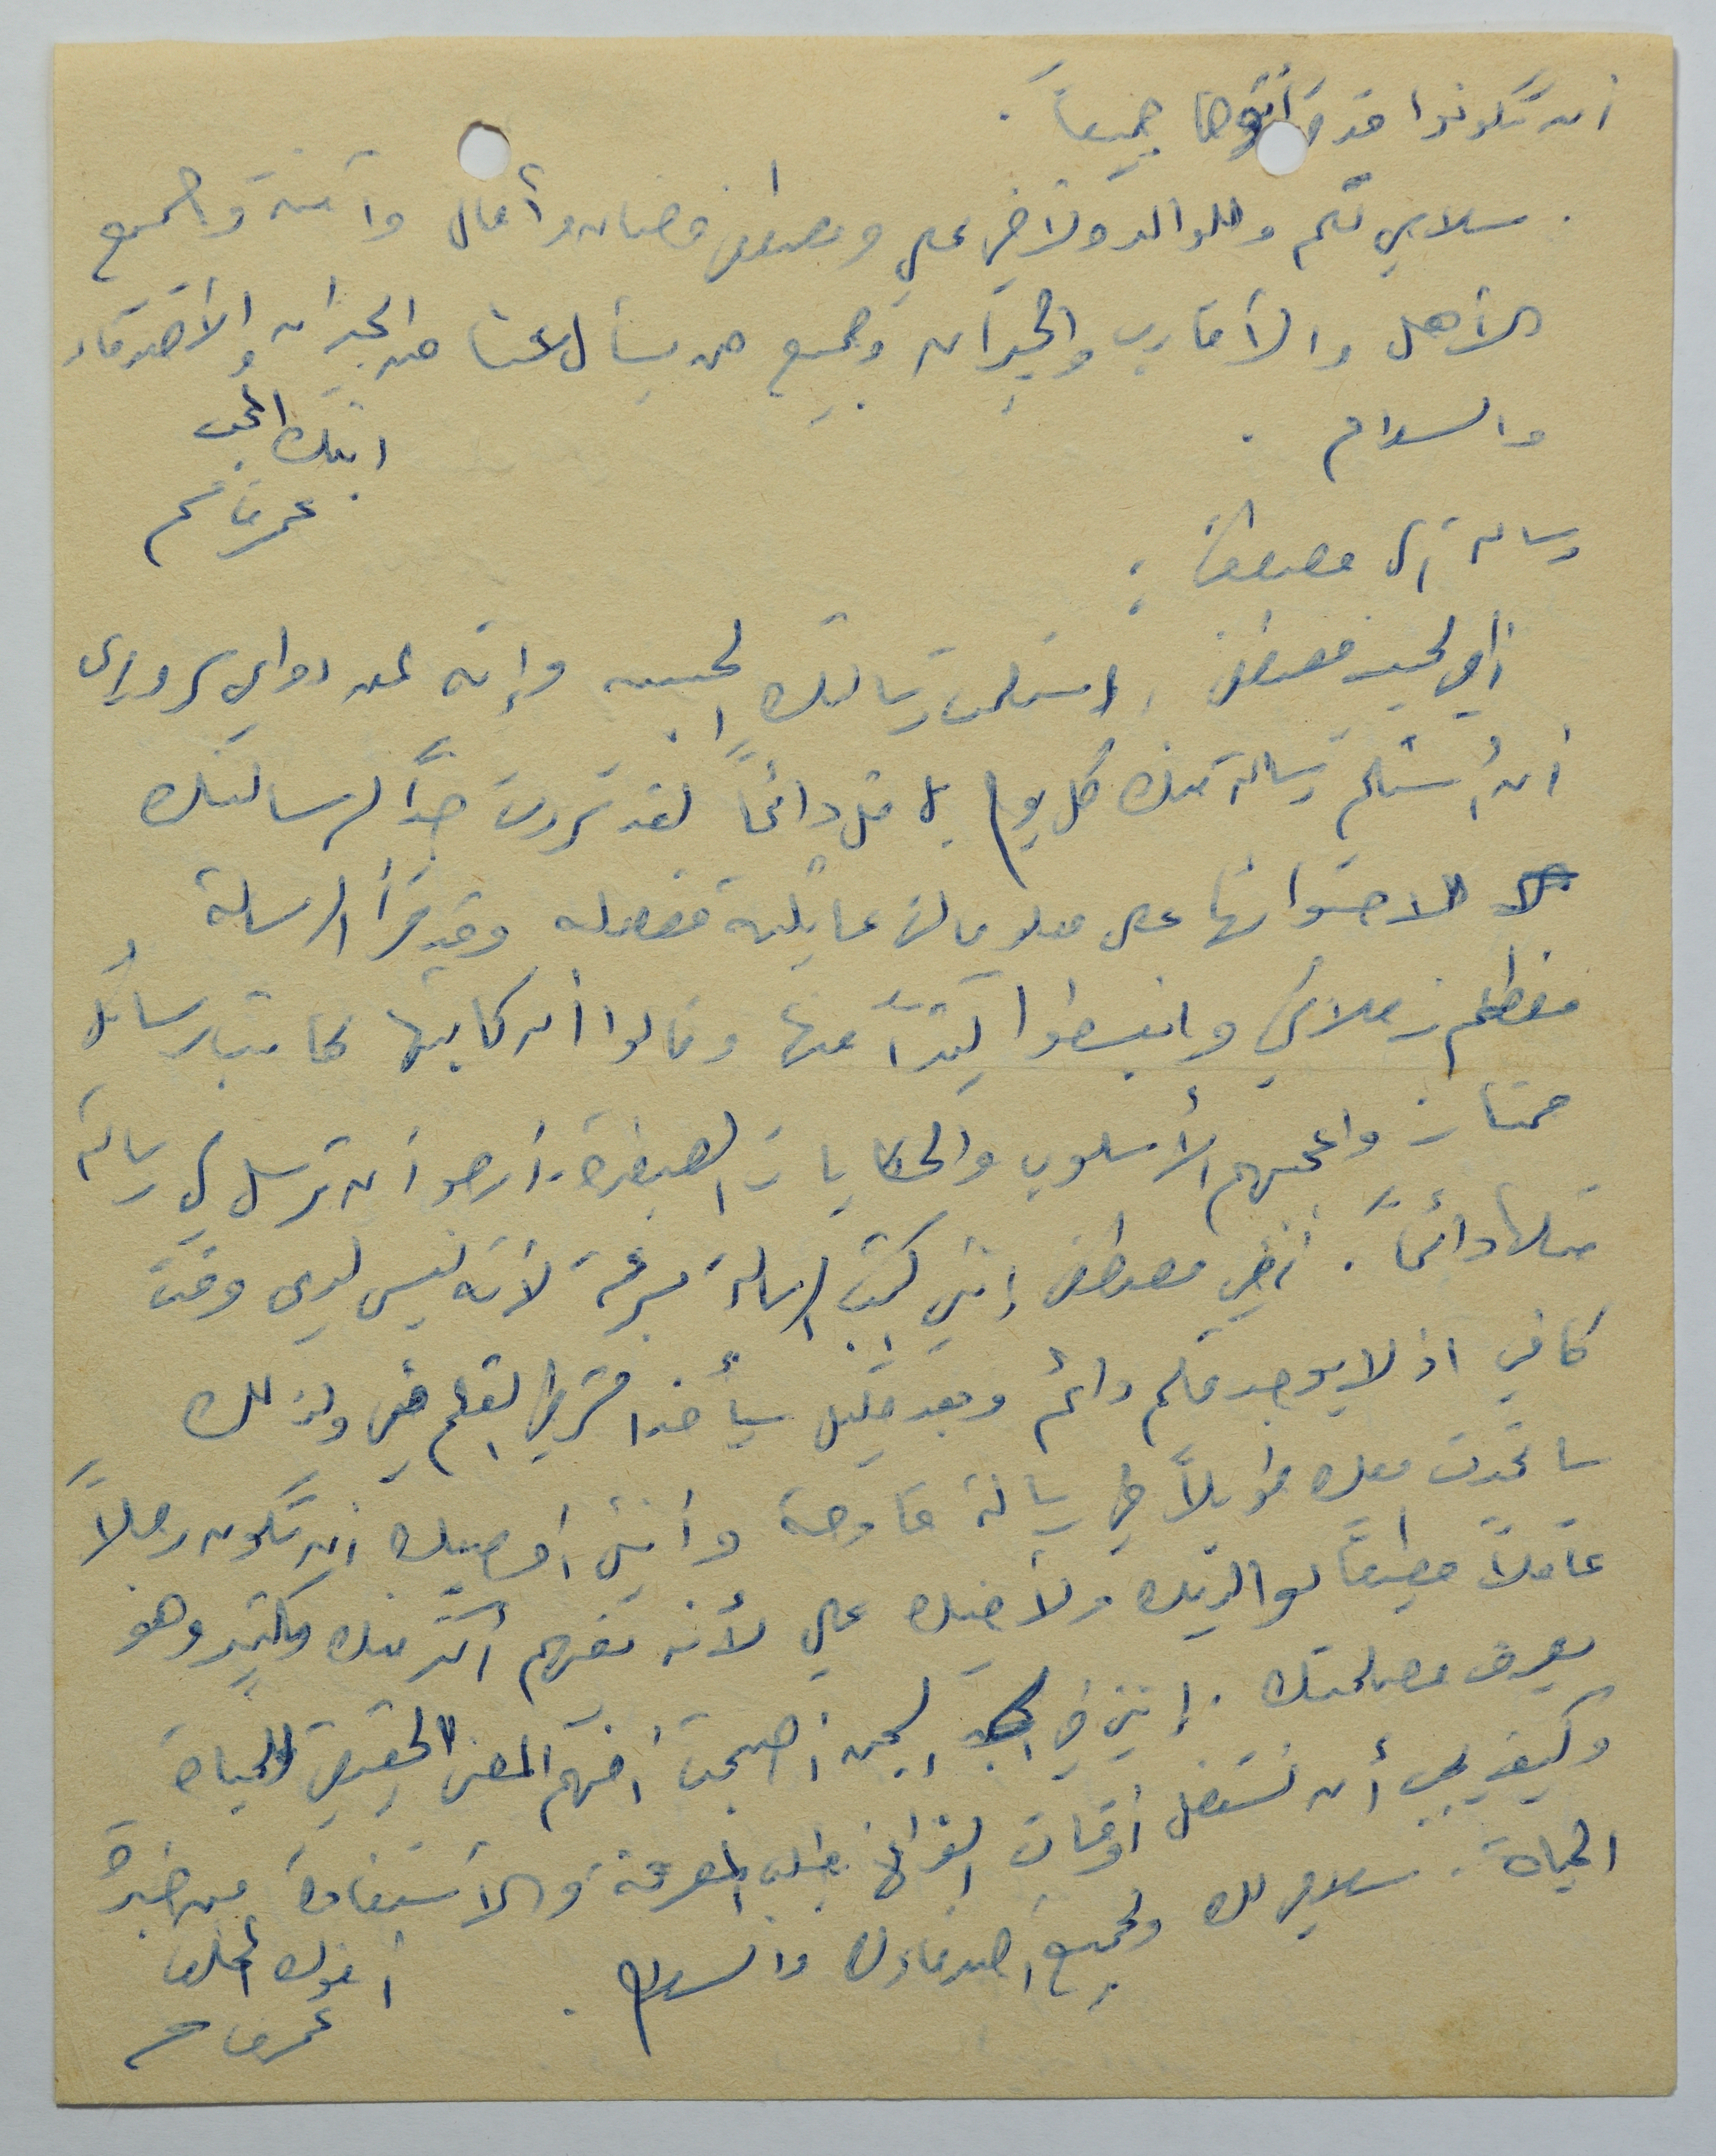 أن تكونوا قد قرأتموها جميعاً .
سلامي لكم وللوالد ولأخي علي ومصطفى وحنان وآمال وآمنة وجميع
الأهل والأقارب والجيران وجميع من يسأل عنا من الجيران والأصدقاء
والسلام .
ابنك المحب
عمر قاسم
رسالة إلى مصطفى :
أخي الحبيب مصطفى ، استلمت رسالتك الحبيبة وإنه لمن دواعي سروري
أن أستلم رسالة منك كل يوم بل قل دائماً لقد سررت جداً لرسالتك
لاحتوائها على معلومات عائلية مفصله وقد قرأ الرسالة
معظم زملائي وانبسطوا كثيراً منها وقالوا أن كاتبها كاتب رسائل
ممتاز وأعجبهم الأسلوب والحكايات الصغيرة . أرجو أن ترسل لي رسالة
مثلها دائماً . أخي مصطفى إنني كتبت الرسالة بسرعة لأنه ليس لدي وقت
كافي اذ لا يوجد قلم دائم وبعد قليل سيأخذ الشرطي القلم مني ولذلك
سأتحدث معك طويلاً في رسالة قادمة وأنني أوصيك أن تكون رجلاً
عاقلاً مطيعاً لوالديك ولأخيك علي لأنه يفهم أكثر منك بكثير وهو
يعرف مصلحتك . إنني في السجن أصبحت أفهم المعنى الحقيقي للحياة
وكيف يجب أن نستغل أوقات الفراغ بطلب المعرفة والاستفادة من خبرة
الحياة . سلامي لك ولجميع أصدقاؤك والسلام .
أخوك المخلص
عمر قاسم